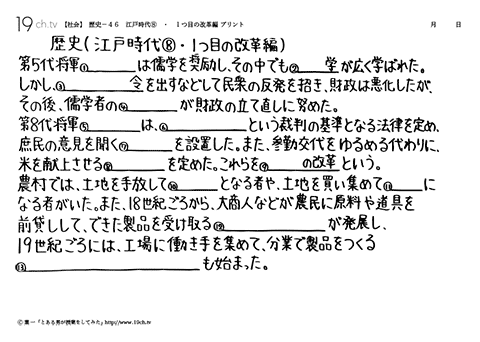 19ch.tv 【社会】 歴史－46 江戸時代⑧ ・ 1つ目の改革編 プリント 月 日
歴史(江戸時代⑧・1つ目の改革編)
第5代将軍① は儒学を奨励し、その中でも② 学が広く学ばれた。
しかし、③ 令を出すなどして民衆の反発を招き、財政は悪化したが、
その後、儒学者の④ が財政の立て直しに努めた。
第8代将軍⑤ は、⑥ という裁判の基準となる法律を定め、
庶民の意見を聞く⑦ を設置した。また、参勤交代をゆるめる代わりに、
米を献上させる⑧ を定めた。これらを⑨ の改革という。
農村では、土地を手放して⑩ となる者や、土地を買い集めて⑪ に
なる者がいた。また、18世紀ごろから、大商人などが農民に原料や道具を
前貸しして、できた製品を受け取る⑫ が発展し、
19世紀ごろには、工場に働き手を集めて、分業で製品をつくる
⑬ も始まった。
Ⓒ 葉一「とある男が授業をしてみた」http://www.19ch.tv